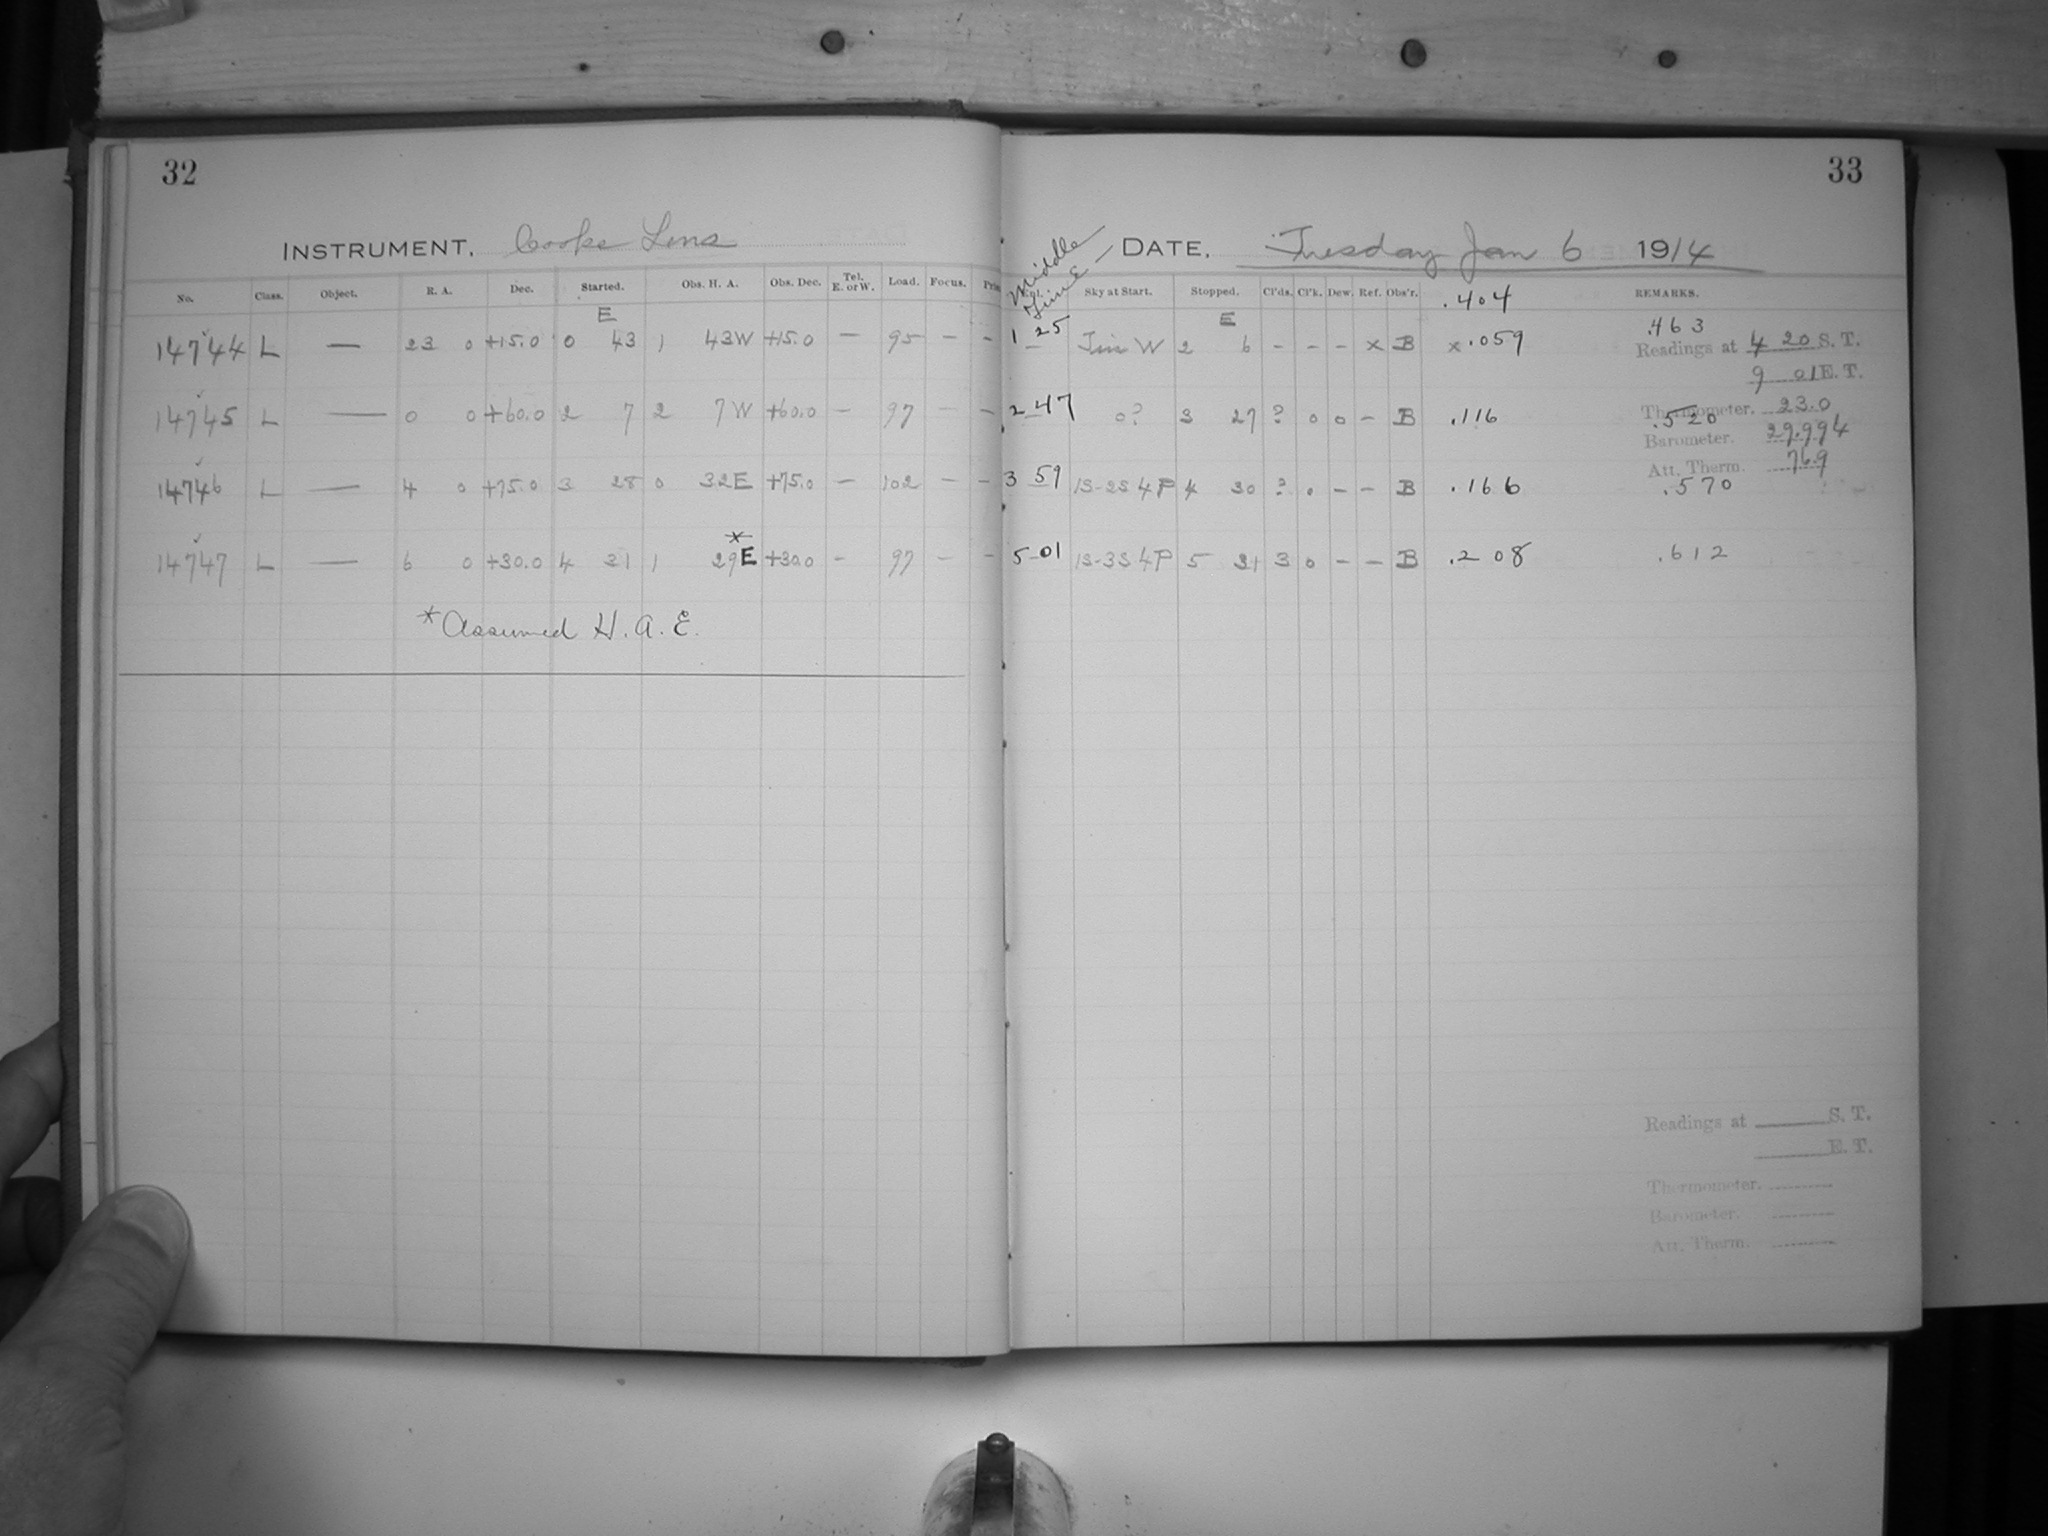 32
INSTRUMENT, Cooke Lens
No. Class. Object. R. A. Dec. Started. Obs. H. A. Obs. Dec. Tel. E. or W. Load. Focus.
E
14744 L — 23 0 +15.0 0 43 1 43W +15.0 — 95 — -
14745 L — 0 0 +60.0 2 7 2 7W +60.0 — 97 — —
14746 L — 4 0 +75.0 3 28 0 32E +75.0 — 102 — —
*
14747 L — 6 0 +30.0 4 31 1 29E +30.0 - 97 - -
*Assumed H.A.E.
33
Middle Time
DATE, Tuesday Jan 6 1914
Sky at Start. Stopped. Cl'ds. Cl'k. Dew. Ref. Obs'r. .404 REMARKS.
E
1 25 W 2 6 - - - x B x.059 .463
Readings at 4 20 S. T.
9 01 E. T.
2 47 0? 3 27 ? 0 0 - B .116 .520
Thermometer. 23.0
Barometer. 29.994
Att. Therm. 76.9
3 59 1S-2S 4P 4 30 ? 0 - - B .166 .570
5 01 1S-3S 4P 5 31 3 0 - - B .208 .612
Readings at S. T.
E. T.
Thermometer.
Barometer.
Att. Therm.